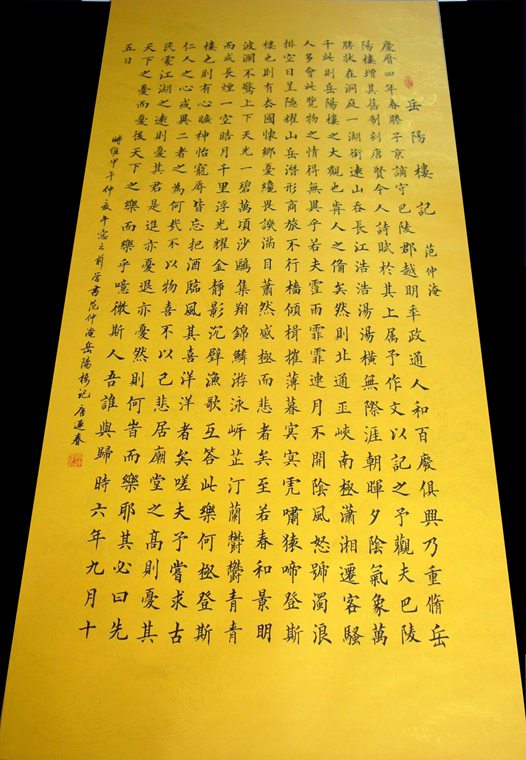 岳陽樓記 范仲淹
慶曆四年春滕子京謫守巴陵郡越明年政通人和百廢俱興乃重脩岳
陽樓增其舊制刻唐賢今人詩賦於其上属予作文以記之予觀夫巴陵
勝狀在洞庭一湖銜遠山吞長江浩浩湯湯橫無際涯朝暉夕陰氣象萬
千此則岳陽樓之大觀也前人之俻矣然則北通巫峽南極瀟湘遷客騷
人多會此覽物之情得無異乎若夫霪雨霏霏連月不開陰風怒號濁浪
排空日星隱耀山岳潛形商旅不行檣傾楫摧薄暮冥冥虎嘯猿啼登斯
樓也則有去國懷鄉憂讒畏譏滿目蕭然感極而悲者矣至若春和景明
波瀾不驚上下天光一碧萬頃沙鷗集翔錦鱗游泳岸芷汀蘭鬱鬱青青
而或長煙一空皓月千里浮光耀金靜影沉璧漁歌互答此樂何極登斯
樓也則有心曠神怡寵辱皆忘把酒臨風其喜洋洋者矣嗟夫予嘗求古
仁人之心或異二者之為何哉不以物喜不以己悲居廟堂之高則憂其
民處江湖之遠則憂其君是進亦憂退亦憂然則何時而樂耶其必曰先
天下之憂而憂後天下之樂而樂乎噫微斯人吾誰與歸時六年九月十
五日
時維甲午仲午窓之前書范仲淹岳陽樓記 春